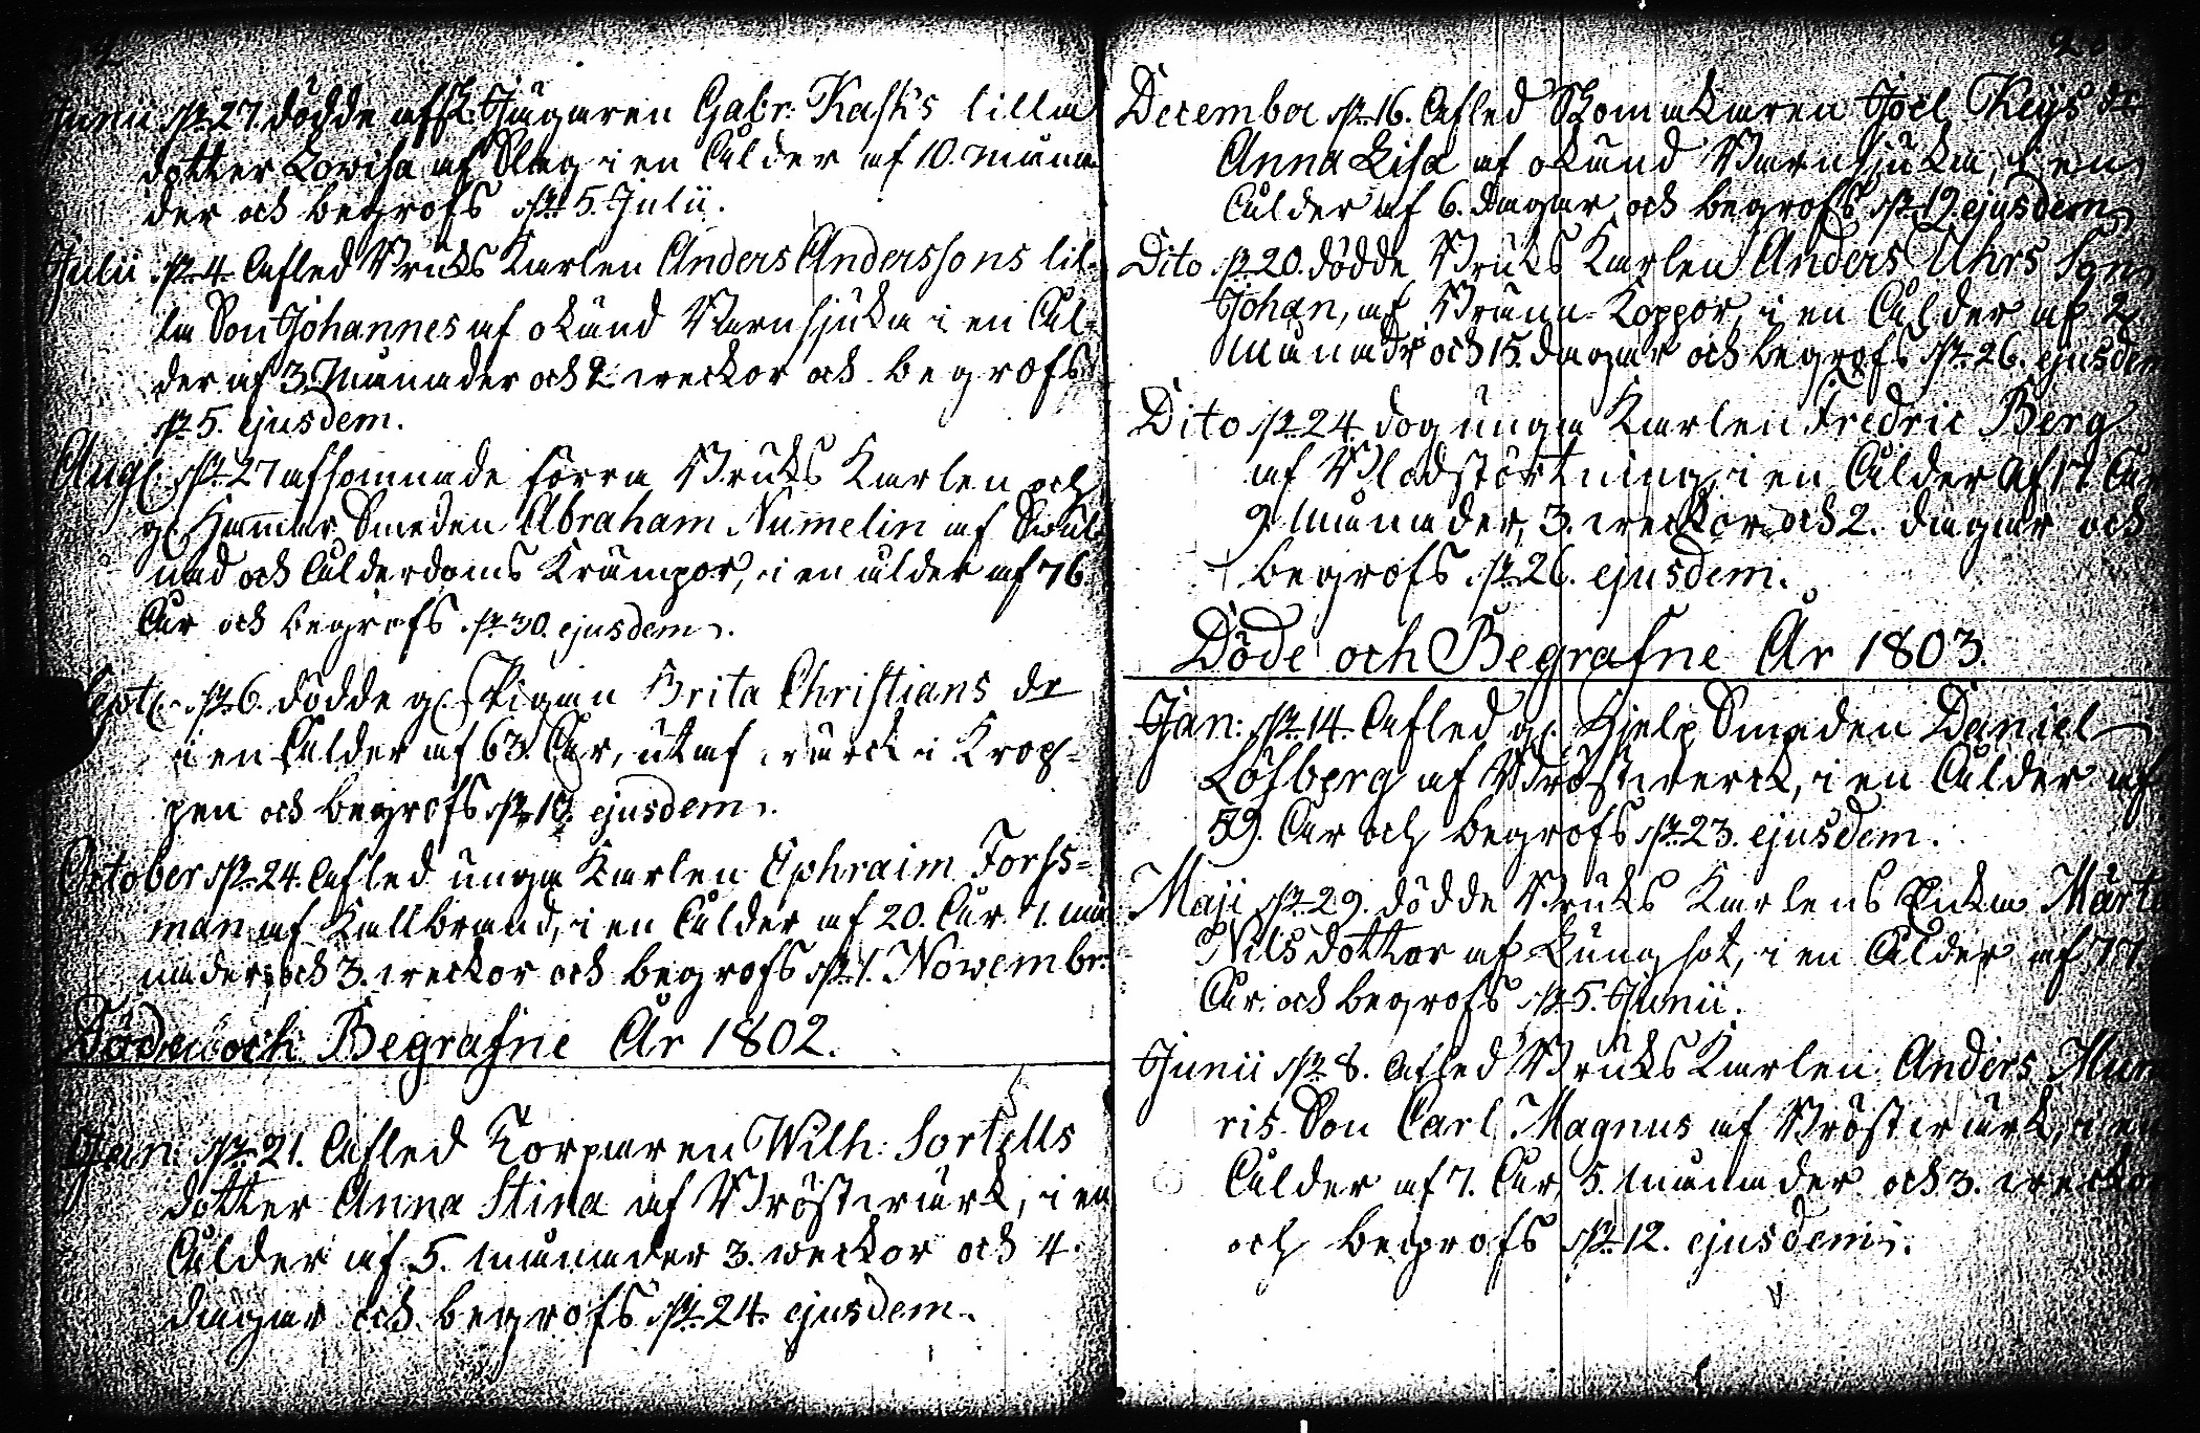 Junii d. 27. dödde afsk. Jägaren Gabr: Kasks lilla
dotter Lowisa af Slag i en Ålder af 10. måna
der och begrofs d. 5. Julii.
Julii d. 4. Afled Bruks Karlen Anders Anderssons lil=
la Son Johannes af okänd Barnsjuka i en Ål=
der af 3. Månader och 2 weckor och begrofs
d. 5. ejusdem.
Aug. d. 27 afsomnade förra Bruks Karlen och
gl. Hammar Smeden Abraham Numelin af
nad och Ålderdoms Krämpor, i en ålder af 76.
År och begrofs d. 30. ejusdem.
Sept. d. 6. dödde gl. Pigan Brita Christians dr
i en Ålder af 63. År, utaf wärck i Krop=
pen och begrofs d. 10. ejusdem.
October d. 24. Afled unga Karlen Ephraim Forss=
man af Kallbrand, i en Ålder af 20. År 1. må
nader och 3. weckor och begrofs d. 1. Nowembr.
Döde och Begrafne År 1802.
Jan: d. 21. Afled Torparen Wilh: Sortells
dotter Anna Stina af Bröstwärk, i en
Ålder af 5. månader 3. weckor och 4.
dagar och begrofs d. 24. ejusdem.
December d. 16. Afled Skomakaren Joel Keijs dr
Anna Lisa af okänd Barnsjuka, i en
Ålder af 6. dagar och begrofs d. 19. ejusdem
Dito d. 20. dödde Bruks Karlen Anders Uhrs Son
Johan, af Brånn-Koppor, i en Ålder af 2
Månadr och 15. dagar och begrofs d. 26. ejusdem
Dito d. 24. dog unga Karlen Fredric Berg
af Blodstörtning, i en Ålder af 17. År
9 månader, 3. weckor och 2. dagar och
begrofs d. 26. ejusdem.
Döde och Begrafne År 1803.
Jan: d. 14. Afled gl. Hjelp Smeden Daniel
Löfberg af Bröstwerck, i en Ålder af
59. År och begrofs d. 23. ejusdem.
Maji d. 29. dödde Bruks Karlens Enka Märta
Nils dotter af Lungsot, i en Ålder af 77.
År och begrofs d. 5. Junii.
Junii d. 8. Afled Bruks Karlen Anders Mur
ris Son Carl Magnus af Bröstwärk, i en
Ålder af 7. År, 5. månader och 3. weckor
och begrofs d. 12. ejusdem.